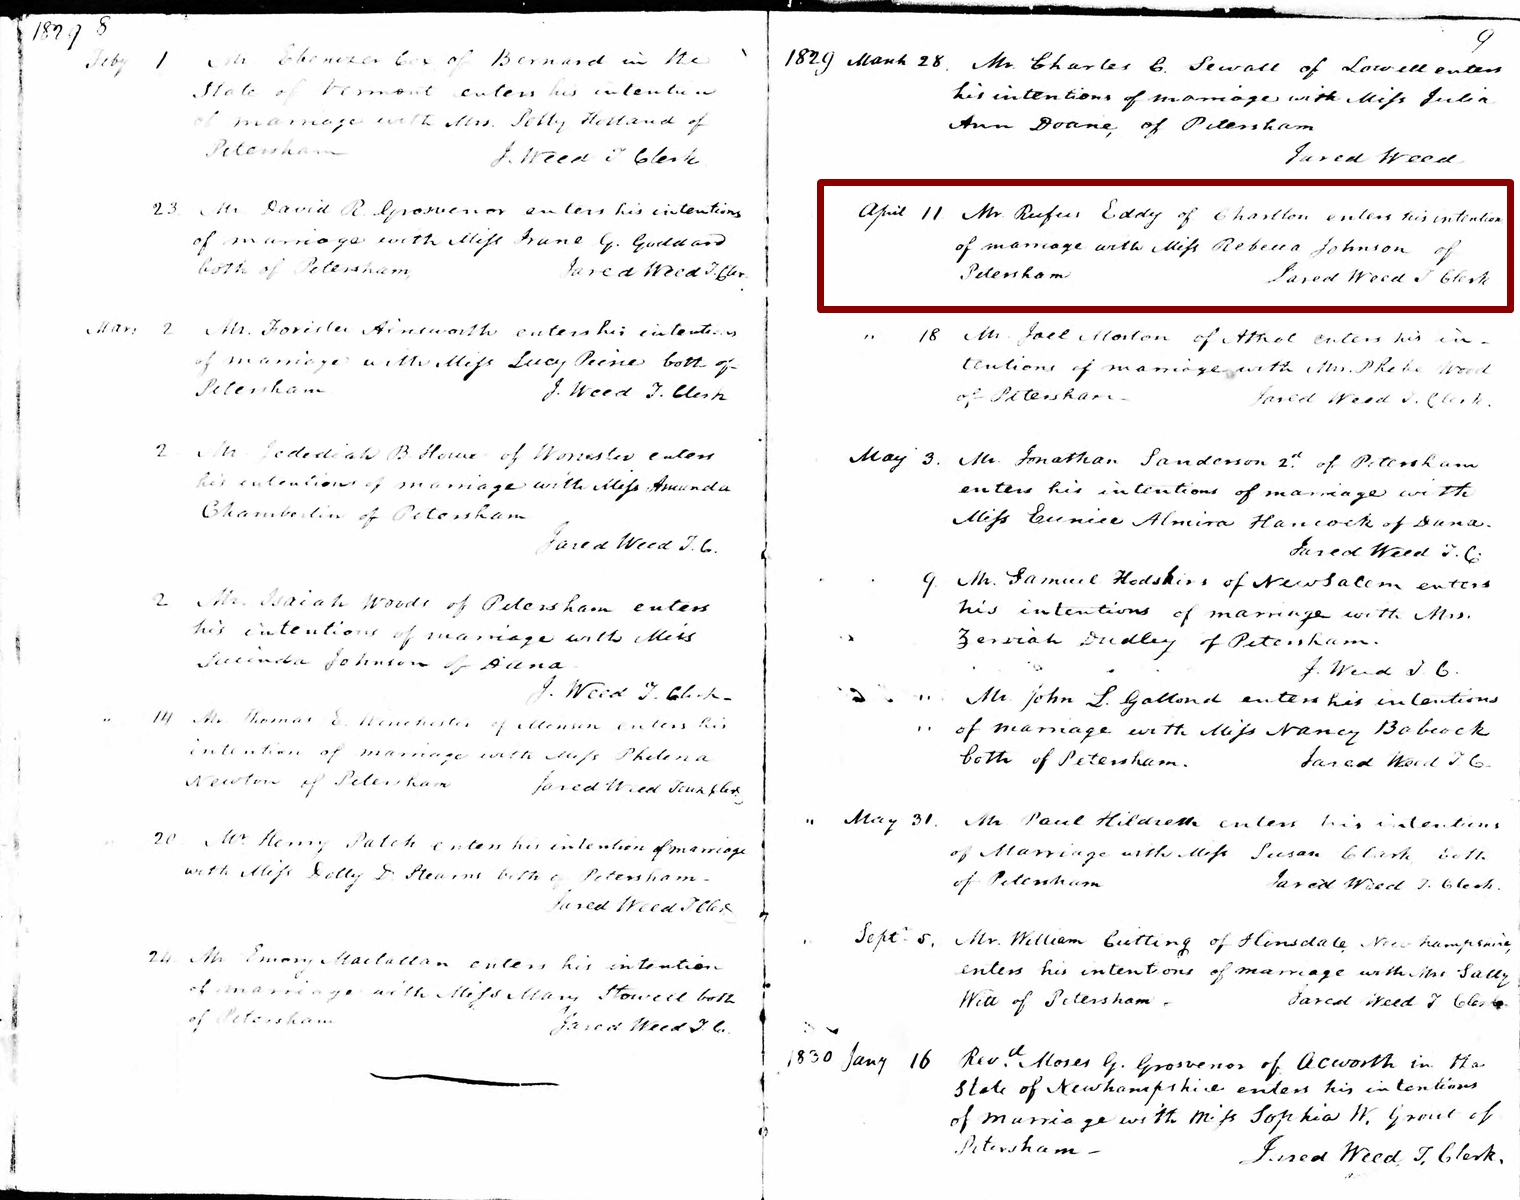 1829 8
Feby 1 Mr. Ebenezer Cox of Bernard in the
State of Vermont enters his intention
of marriage with Mrs. Polly Holland of
Petersham J. Weed T Clerk
23 Mr. David R. Grosvenor enters his intentions
of marriage with Miss Irane G. Goddard
both of Petersham, Jared Weed T. Cler.
Mar: 2 Mr. Forister Ainsworth enters his intentions
of marriage with Miss Lucy Peirce both of
Petersham J. Weed T. Clerk
2 Mr. Jedediah B. Howe of Worcester enters
his intentions of marriage with Miss Amanda
Chamberlin of Petersham
Jared Weed T. C.
2 Mr. Isaiah Woods of Petersham enters
his intentions of marriage with Miss
Lucinda Johnson of Dana
J. Weed T. Clerk
" 14 Mr. Thomas E. Winchester of Monson enters his
intention of marriage with Miss Philena
Newton of Petersham Jared Weed Town Clerk
" 20 Mr. Henry Patch enters his intention of marriage
with Miss Dolly D. Stearns both of Petersham-
Jared Weed T Clerk
24 Mr Emory enters his intention
of marriage with Miss Mary Stowell both
of Petersham Jared Weed T. C.
9
1829 March 28. Mr. Charles C. Sewall of Lowell enters
his intentions of marriage with Miss Julia
Ann Doane, of Petersham
Jared Weed
April 11 Mr. Rufus Eddy of Charlton enters his intention
of marriage with Miss Rebecca Johnson of
Petersham Jared Weed T Clerk
" 18 Mr. Joel Morton of Athol enters his in-
tentions of marriage with Mrs. Phebe Wood
of Petersham- Jared Weed T. Clerk.
May 3. Mr. Jonathan Sanderson 2d. of Petersham
enters his intentions of marriage with
Miss Eunice Almira Hancock of Dana.
Jared Weed T. C
9. Mr. Samuel Hodskins of New Salem enters
his intentions of marriage with Mrs.
Zerviah Dudley of Petersham.
J. Weed T. C.
" Mr. John L. Gallond enters his intentions
" of marriage with Miss Nancy Babcock
both of Petersham. Jared Weed T C.
" May 31. Mr Paul Hildreth enters his intentions
of Marriage with Miss Susan Clark both
of Petersham Jared Weed T. Clerk.
Sept. 5. Mr. William Cutting of Hinsdale, New hampshire,
enters his intentions of marriage with Mrs Sally
Witt of Petersham. Jared Weed T Clerk.
1830 Jany 16 Revd. Moses G. Grosvenor of Acworth in the
State of Newhampshire enters his intentions
of marriage with Miss Sophia W. Grout of
Petersham- Jared Weed, T. Clerk.